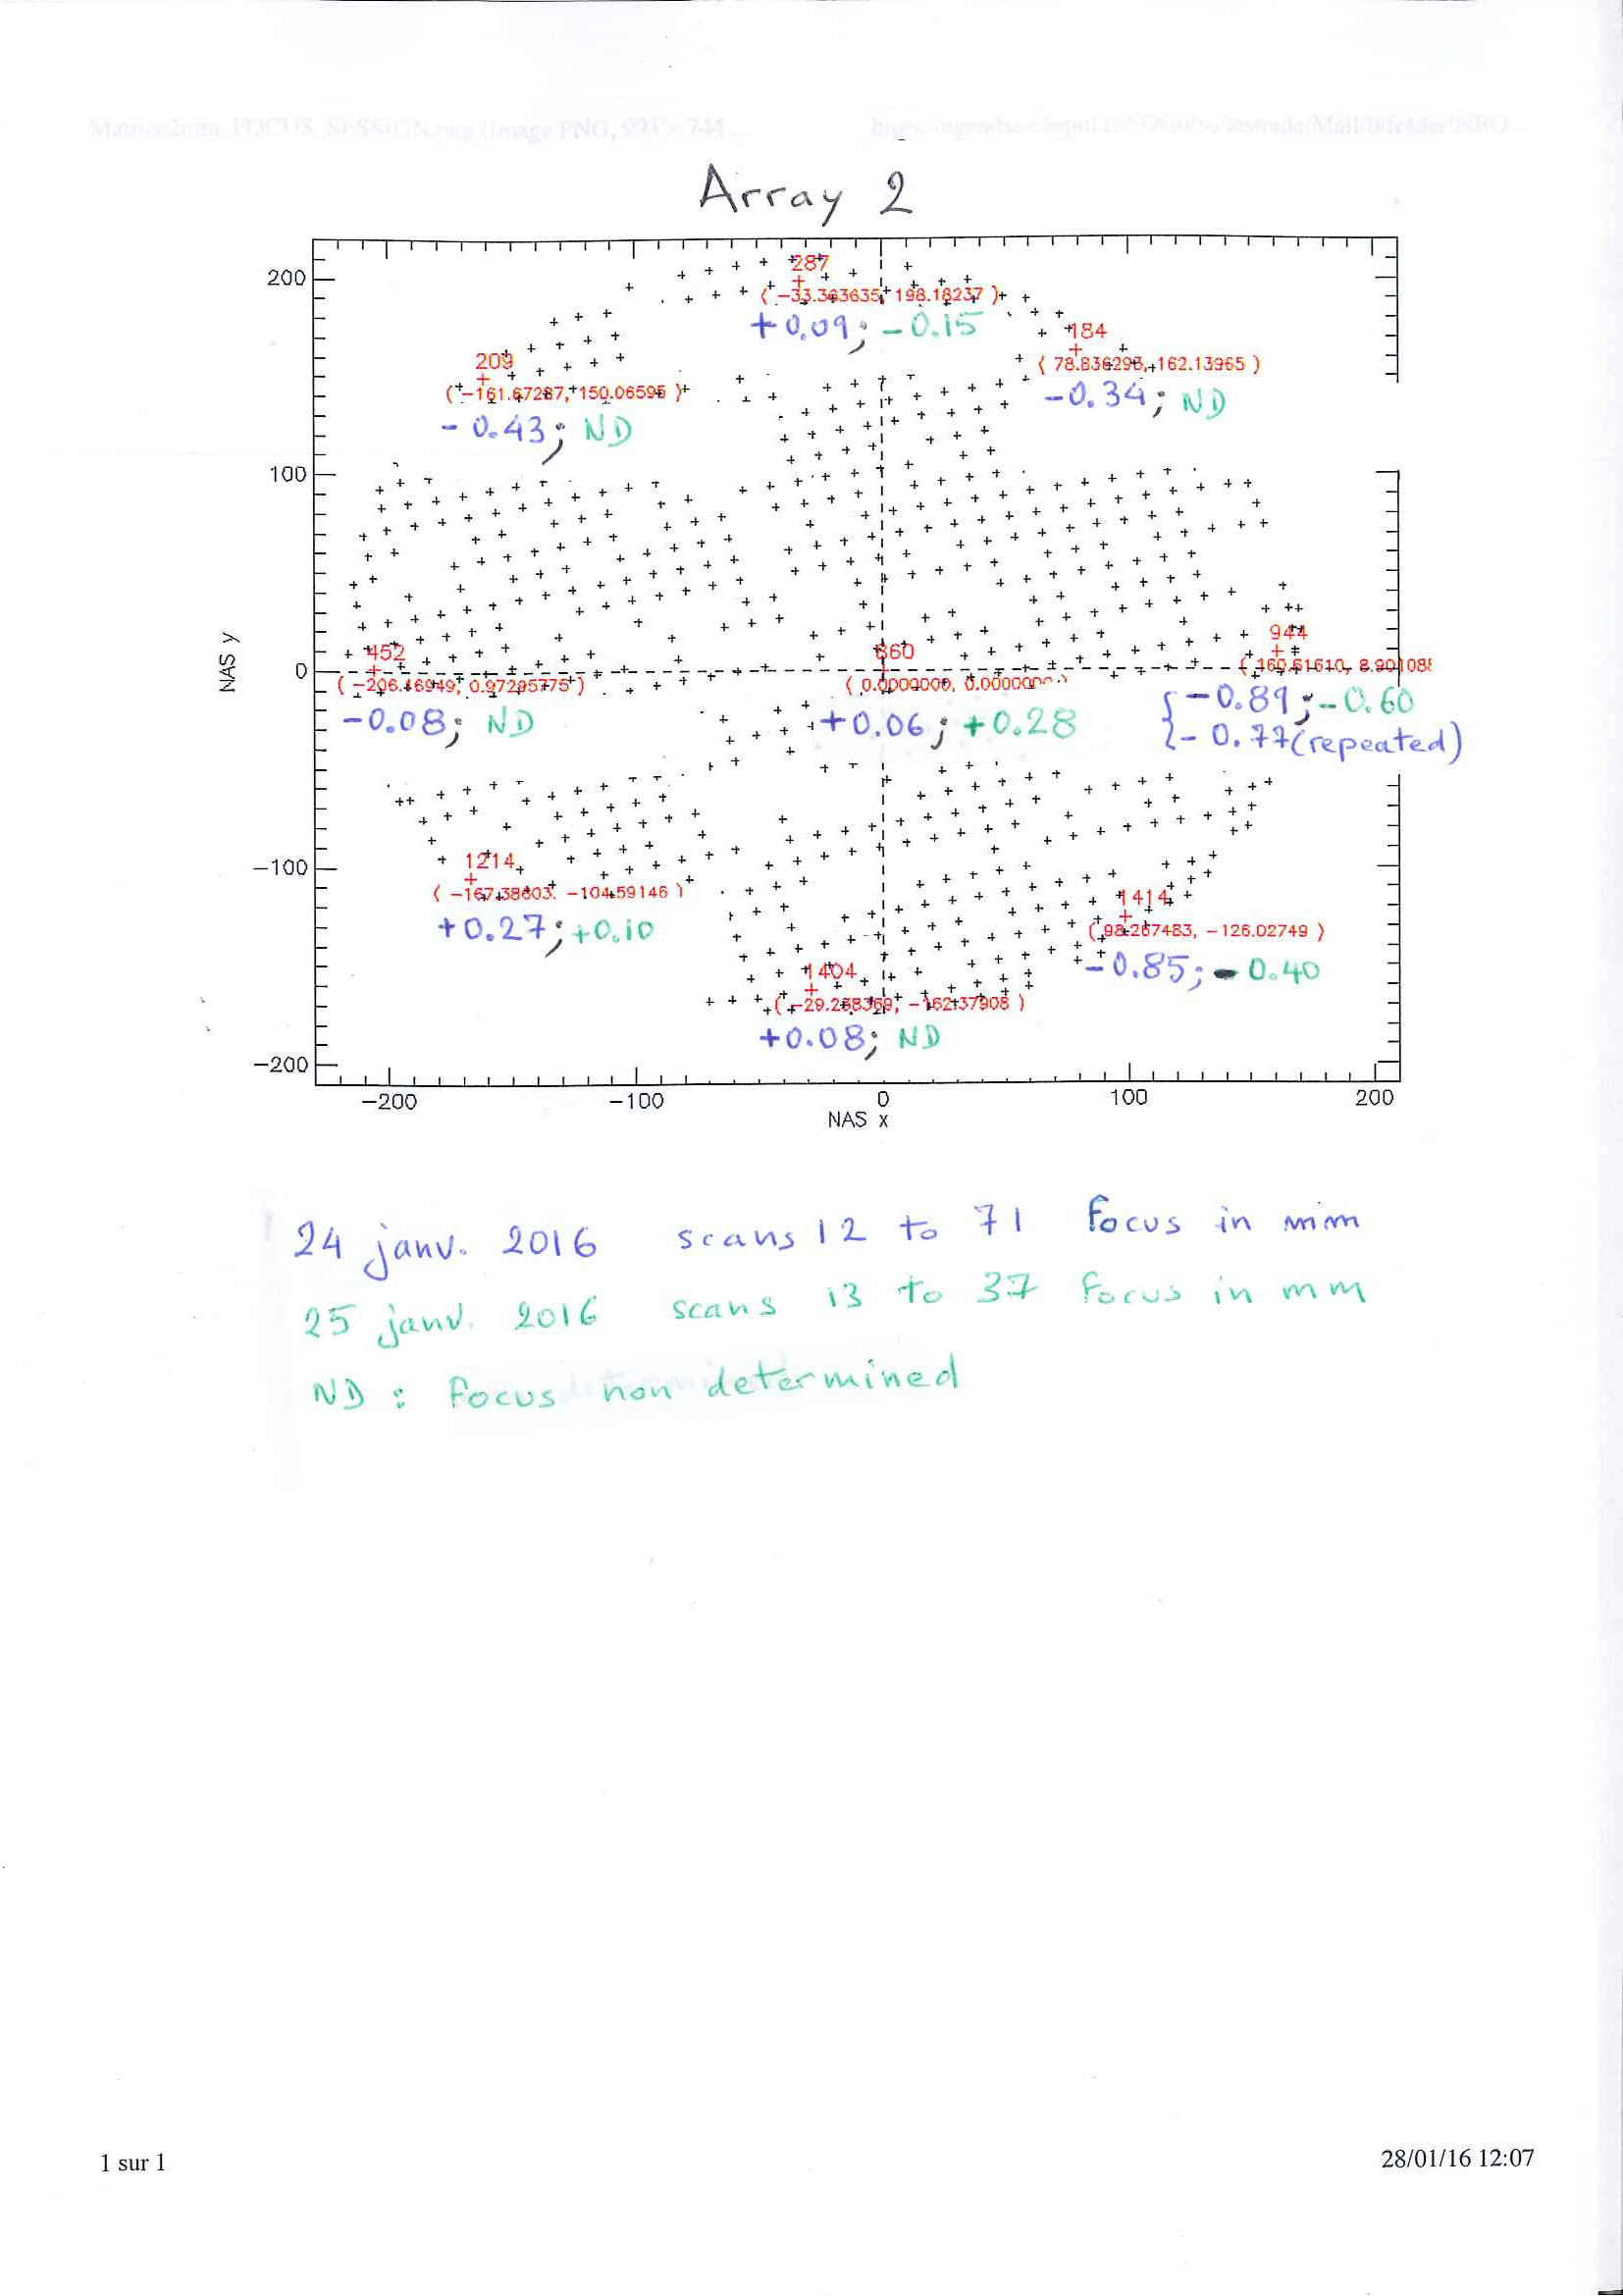 Matrice2mm_FOCUS_SESSION.png (Image PNG, 993 × 744
Array 2
200
287
( -33.363635, 198.18237 )
+0.09; -0.15
184
( 78.836293, 162.13965 )
-0.34; ND
209
( -161.67287, 150.06595 )
-0.43; ND
100
NAS y
0
452
( -206.16949, 0.97295775 )
-0.08; ND
860
( 0.0000000, 0.0000000 )
+0.06; +0.28
944
( 160.61610, 8.901088
{ -0.89; -0.60
- 0.77 (repeated)
-100
1214
( -167.38603, -104.59146 )
+0.27; +0.10
1414
( 98.267483, -126.02749 )
-0.85; - 0.40
1404
( -29.268369, -162.37908 )
+0.08; ND
-200
-200 -100 0 100 200
NAS x
24 janv. 2016 scans 12 to 71 focus in mm
25 janv. 2016 scans 13 to 37 focus in mm
ND : focus non determined
1 sur 1
28/01/16 12:07